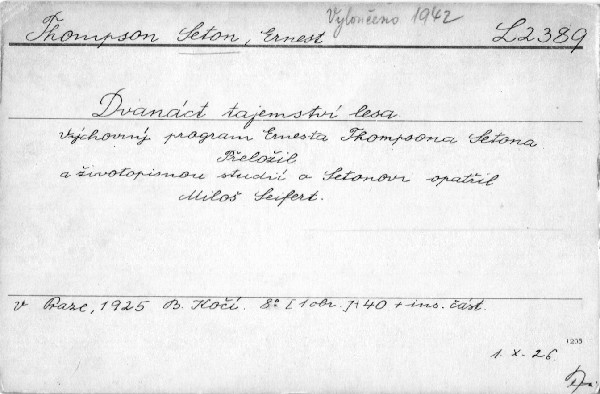 Vyloučeno 1942
Thompson Seton, Ernest L2389
Dvanáct tajemství lesa
Výchovný program Ernesta Thompsona Setona
Přeložil
a životopisnou studií o Setonovi opatřil
Miloš Seifert.
v Praze, 1925 B. Kočí. 8° [1 obr.] 140 + ins. část.
1205
1. X-26.